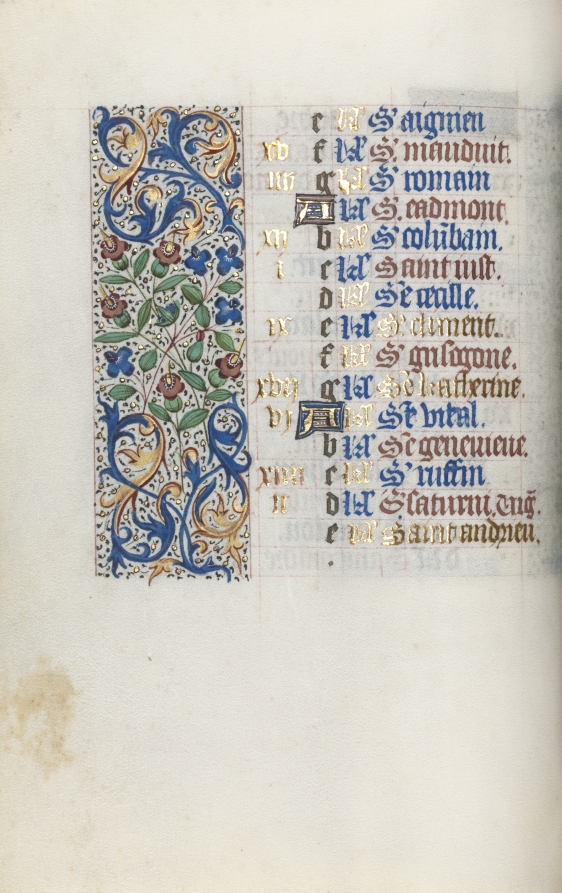 e kł S' aignien
xv f kł S'. mauduit.
iiii g kł S' romain
A kł S'. eadmont.
xii b kł S' colūbain.
i c kł Saint iust.
d kł Se cecille.
ix e kł S' climent.
f kł S' grisogone.
xvii g kł Se katherine.
vi A kł St vital.
b kł Se genevieve.
xiiii c kł S' ruffin
iii d kł S saturni,
e kł Saint andrieu.